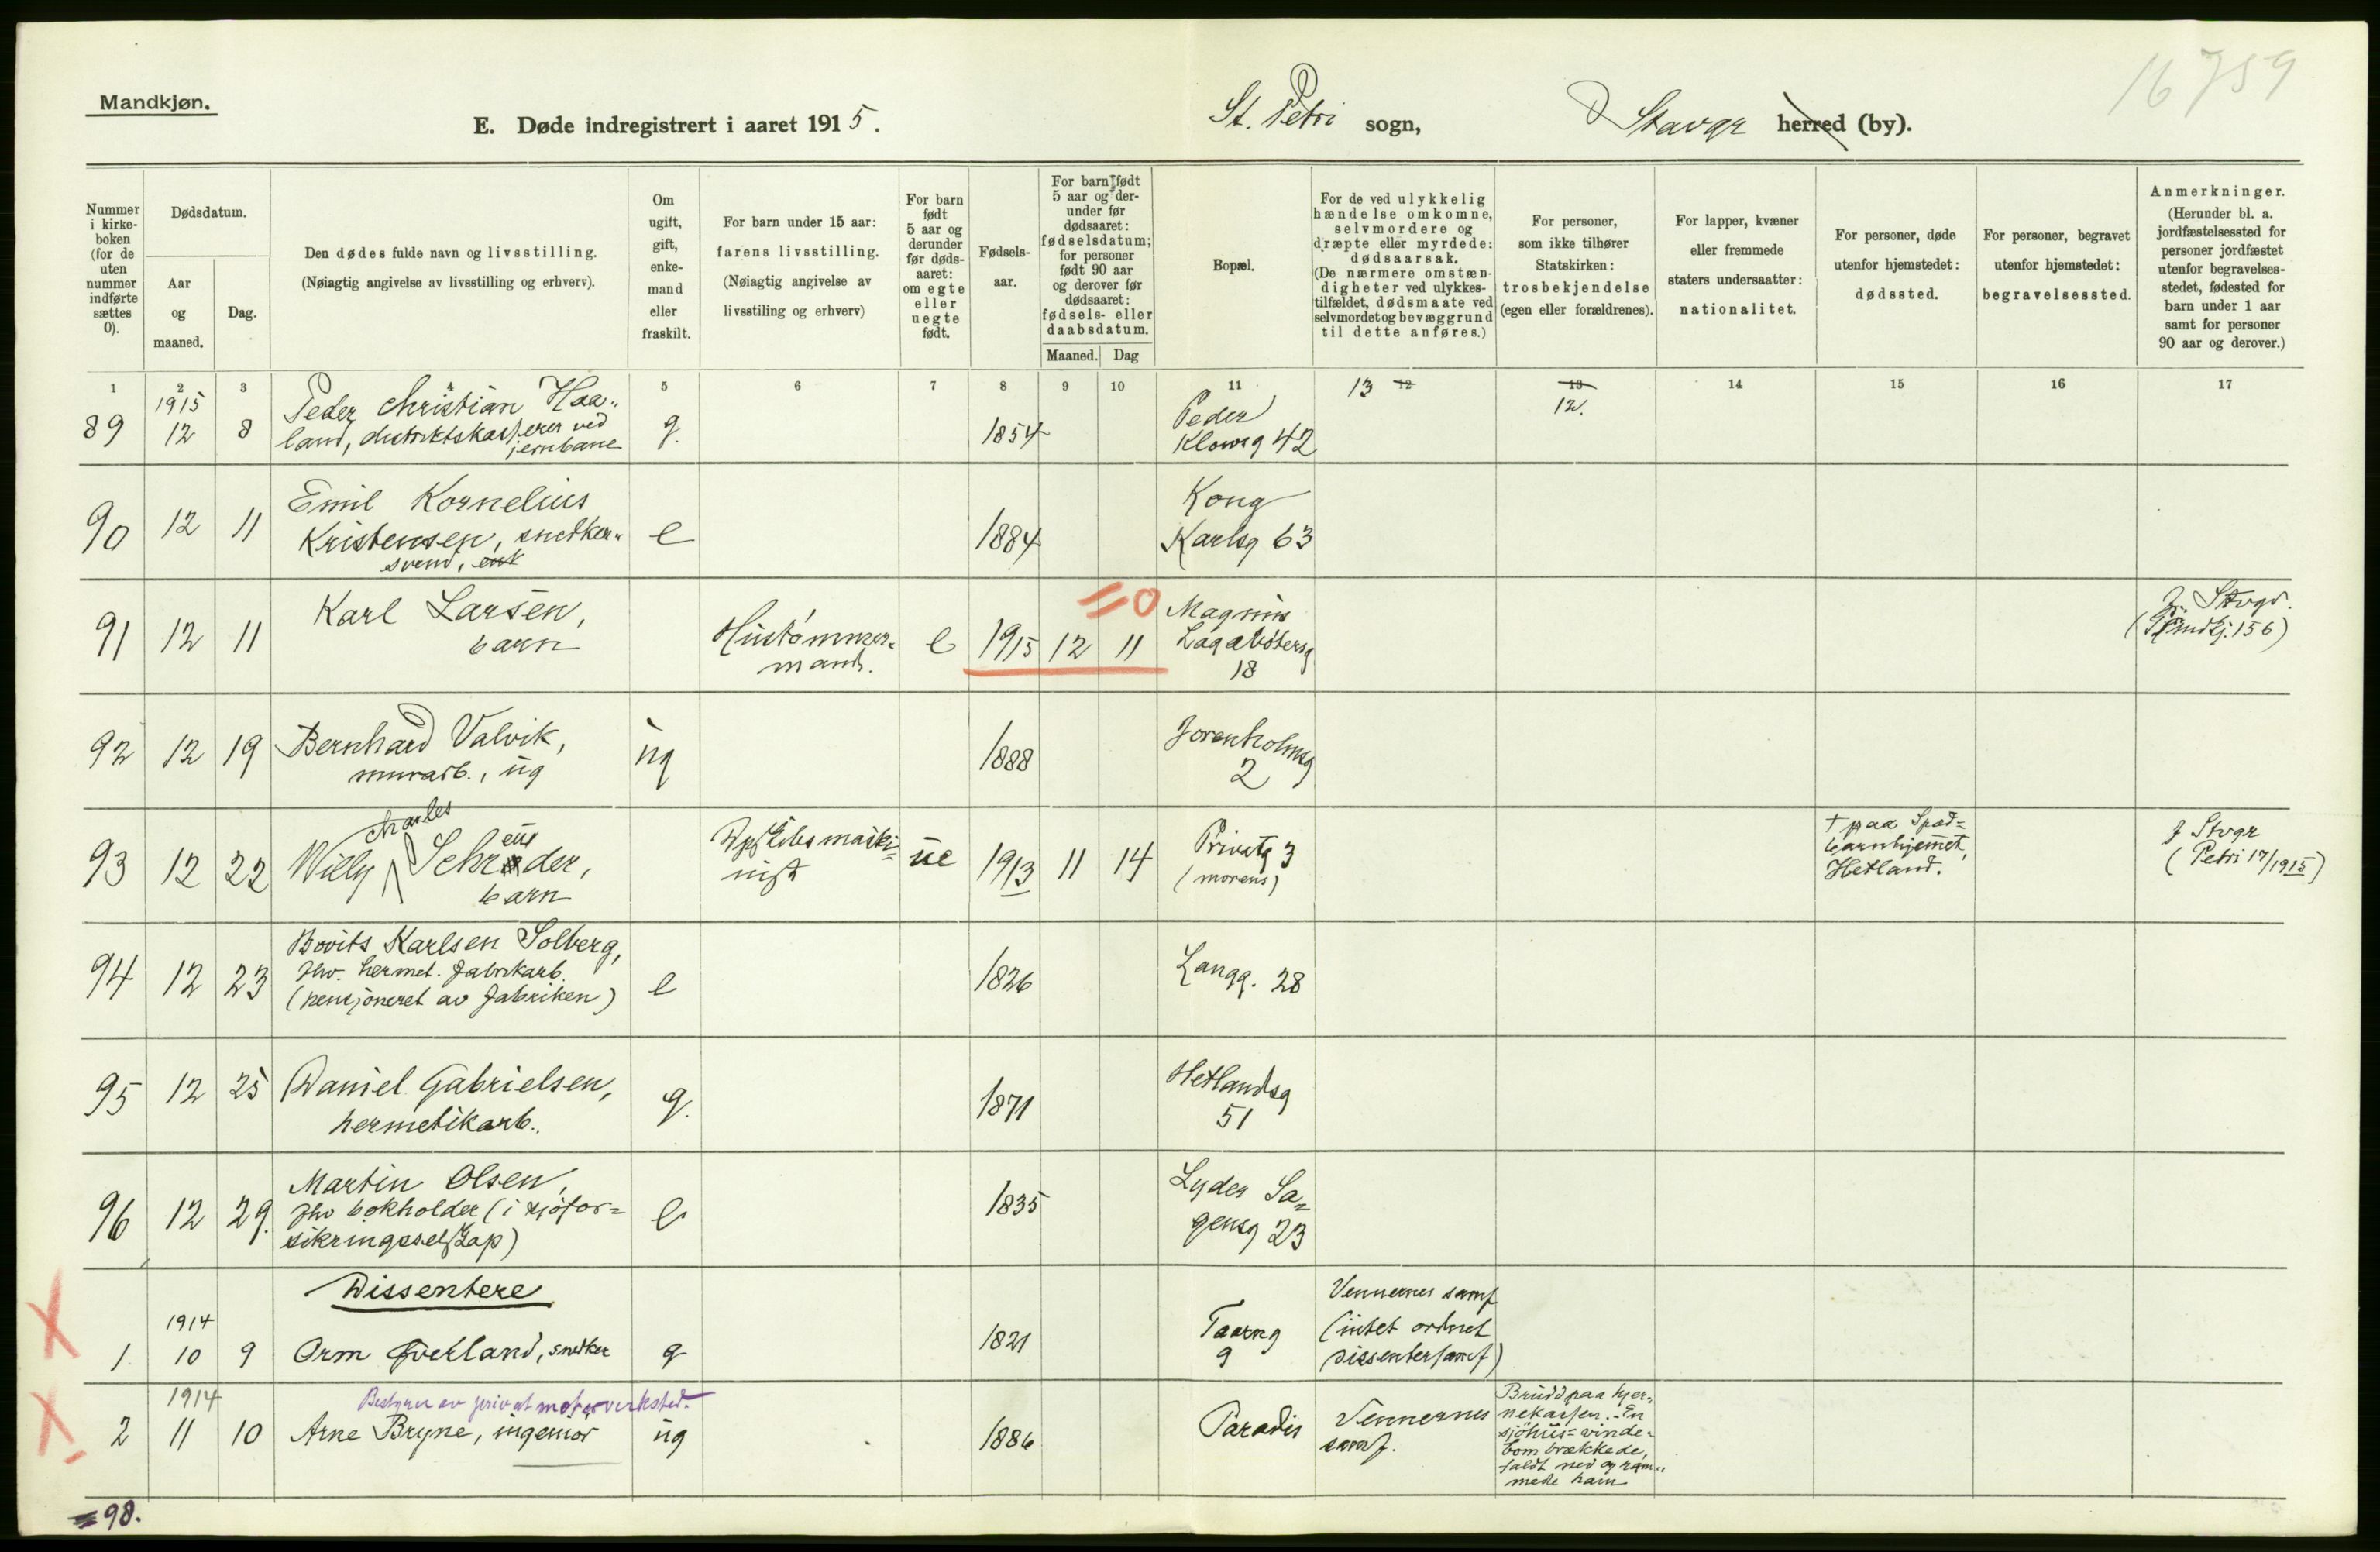 16759
Mandkjøn.
E. Døde indregistrert i aaret 1915.
St. Petri sogn,
Stavgr herred (by).
Nummer
i kirke-
boken
(for de
uten
nummer
indførte
sættes
0).
Dødsdatum.
Aar
og
maaned.
Dag.
Den dødes fulde navn og livsstilling.
(Nøiagtig angivelse av livsstilling og erhverv).
Om
ugift,
gift,
enke-
mand
eller
fraskilt.
For barn under 15 aar:
farens livsstilling.
(Nøiagtig angivelse av
livsstiling og erhverv)
For barn
født
5 aar og
derunder
før døds-
aaret:
om egte
eller
uegte
født.
Fødsels-
aar.
For barn født
5 aar og der-
under før
dødsaaret:
fødselsdatum;
for personer
født 90 aar
og derover før
dødsaaret:
fødsels- eller
daabsdatum.
Maaned. Dag
Bopæl.
For de ved ulykkelig
hændelse omkomne,
selvmordere og
dræpte eller myrdede:
dødsaarsak.
(De nærmere omstæn-
digheter ved ulykkes-
tilfældet, dødsmaate ved
selvmordet og bevæggrund
til dette anføres.)
For personer,
som ikke tilhører
Statskirken:
trosbekjendelse
(egen eller forældrenes).
For lapper, kvæner
eller fremmede
staters undersaatter:
nationalitet.
For personer, døde
utenfor hjemstedet:
dødssted.
For personer, begravet
utenfor hjemstedet:
begravelsessted.
Anmerkninger.
(Herunder bl. a.
jordfæstelsessted for
personer jordfæstet
utenfor begravelses-
stedet, fødested for
barn under 1 aar
samt for personer
90 aar og derover.)
1 2 3 4 5 6 7 8 9 10 11 13 12 13 12. 14 15 16 17
1915
89 12 8 Peder Christian Haa-
land, distriktskasserer ved
jernbane
g. 1854 Peder
Klowsg 42
90 12 11 Emil Kornelius
Kristensen, snedker-
svend, enk
e 1884 Kong
Karlsg 63
91 12 11 Karl Larsen,
barn
Hustømmer-
mand.
e 1915 12 11 =0 Magnus
Lagabøtersg
18
f. Stvgr.
(Kvindkj. 156)
92 12 19 Bernhard Valvik,
murarb., ug
ug 1888 Jorenholmsg
2
93 12 22 Willy Charles Schrøder,
eu
barn
Dpskibsmaski-
nist
ue 1913 11 14 Privatg 3
(morens)
† paa Spæd-
barnhjemmet,
Hetland.
f Stvgr
(Petri 17/1915)
94 12 23 Bovits Karlsen Solberg,
fhv. hermet. fabrikarb.
(pensjoneret av fabriken)
e 1826 Langg. 28
95 12 25 Daniel Gabrielsen,
hermetikarb.
g. 1871 Hetlandsg
51
96 12 29. Martin Olsen,
fhv bokholder (i sjøfor-
sikringsselskap)
e 1835 Lyder Sa-
gensg 23
Dissentere
X 1914
1 10 9 Orm Øverland, snedker g 1821 Taarng
9
Vennernes samf
(intet ordnet
dissentersamf)
X 1914
Bestyrer av privat motorverksted.
2 11 10 Arne Bryne, ingeniør ug 1886 Paradis
Vennernes
samf.
Brudd paa hjer-
nekassen. - En
sjøhus-vinde-
bom brækkede,
faldt ned og ram-
mede ham
=98.